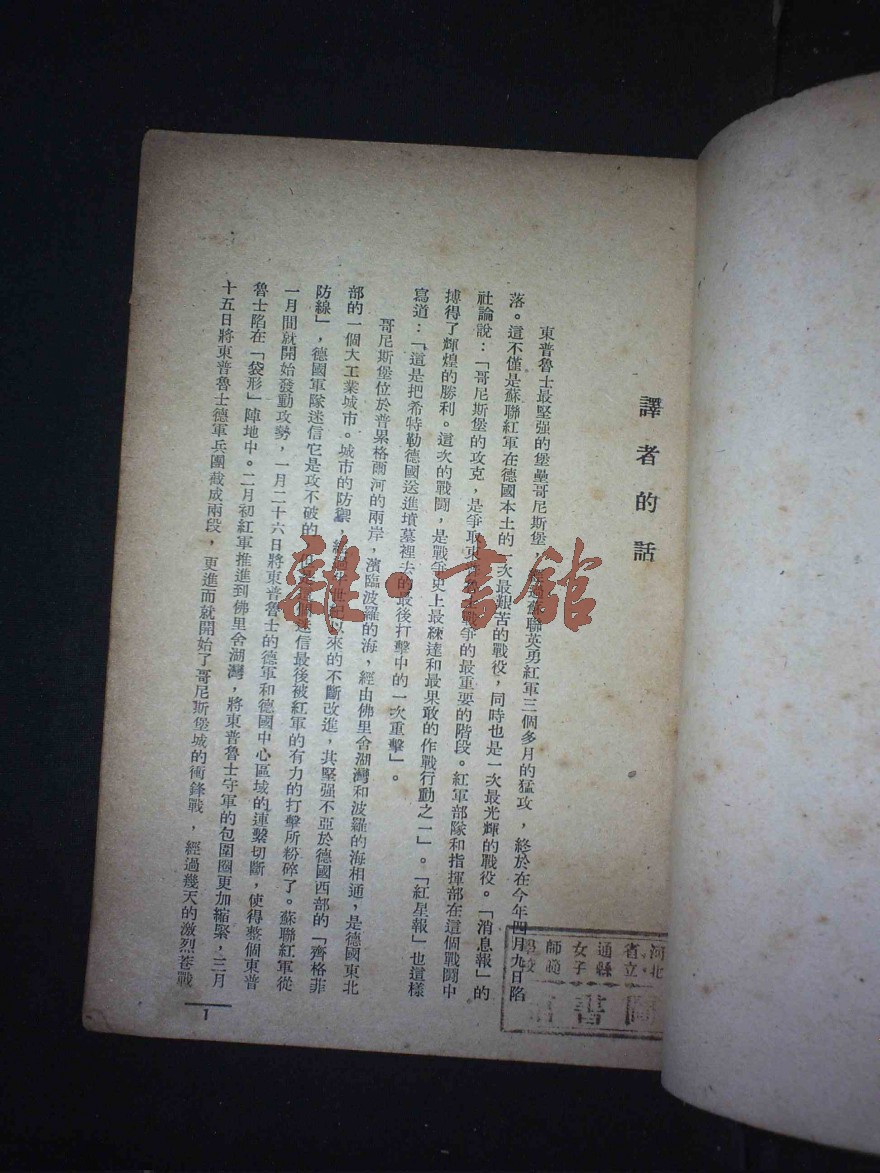 譯者的話
東普魯士最堅强的堡壘哥尼斯堡，聯英勇紅軍三個多月的猛攻，終於在今年四月九日陷
落。這不僅是蘇聯紅軍在德國本土的一次最艱苦的戰役，同時也是一次最光輝的戰役。「消息報」的
社論說：「哥尼斯堡的攻克，是爭取東戰爭的最重要的階段。紅軍部隊和指揮部在這個戰鬪中
搏得了輝煌的勝利。這次的戰鬪，是戰爭史上最練達和最果敢的作戰行動之一」。「紅星報」也這樣
寫道：「這是把希特勒德國送進墳墓裡去的最後打擊中的一次重擊」。
哥尼斯堡位於普累格爾河的兩岸，濱臨波羅的海，經由佛里舍湖灣和波羅的海相通，是德國東北
部的一個大工業城市。城市的防禦，以來的不斷改進，其堅强不亞於德國西部的「齊格菲
防線」，德國軍隊迷信它是攻不破的，迷信最後被紅軍的有力的打擊所粉碎了。蘇聯紅軍從
一月間就開始發動攻勢，一月二十六日將東普魯士的德軍和德國中心區域的連繫切斷，使得整個東普
魯士陷在「袋形」陣地中。二月初紅軍推進到佛里舍湖灣，將東普魯士守軍的包圍圈更加縮緊，三月
十五日將東普魯士德軍兵團截成兩段，更進而就開始了哥尼斯堡城的衝鋒戰，經過幾天的激烈巷戰
1
河北
省立
通縣
女子
師範
學校
圖書
雜·書館